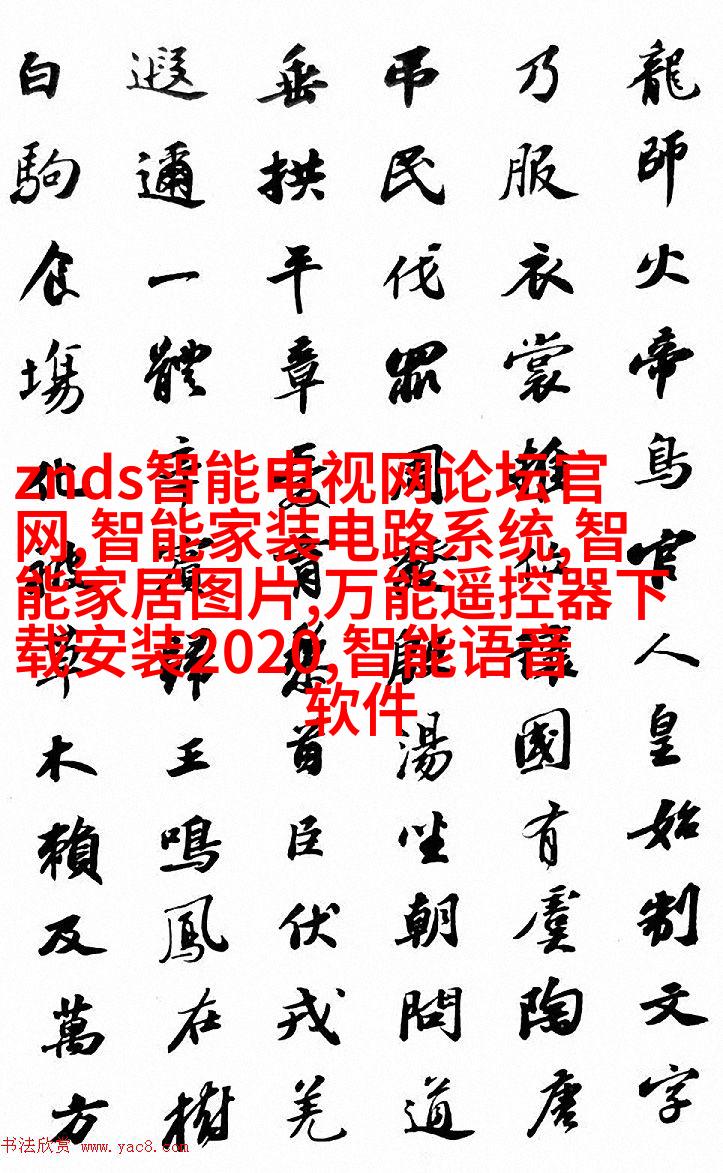 龍師火帝鳥官人皇始制文字
乃服衣裳推位讓國有虞陶唐
吊民伐罪周發殷湯坐朝問道
垂拱平章愛育黎首臣伏戎羌
遐邇一體率賓歸王鳴鳳在樹
白駒食塲化被草木賴及萬方
znds智能电视网论坛官
网,智能家装电路系统,智
能家居图片,万能遥控器下
载安装2020,智能语音
软件
书法欣赏 www.yac8.com